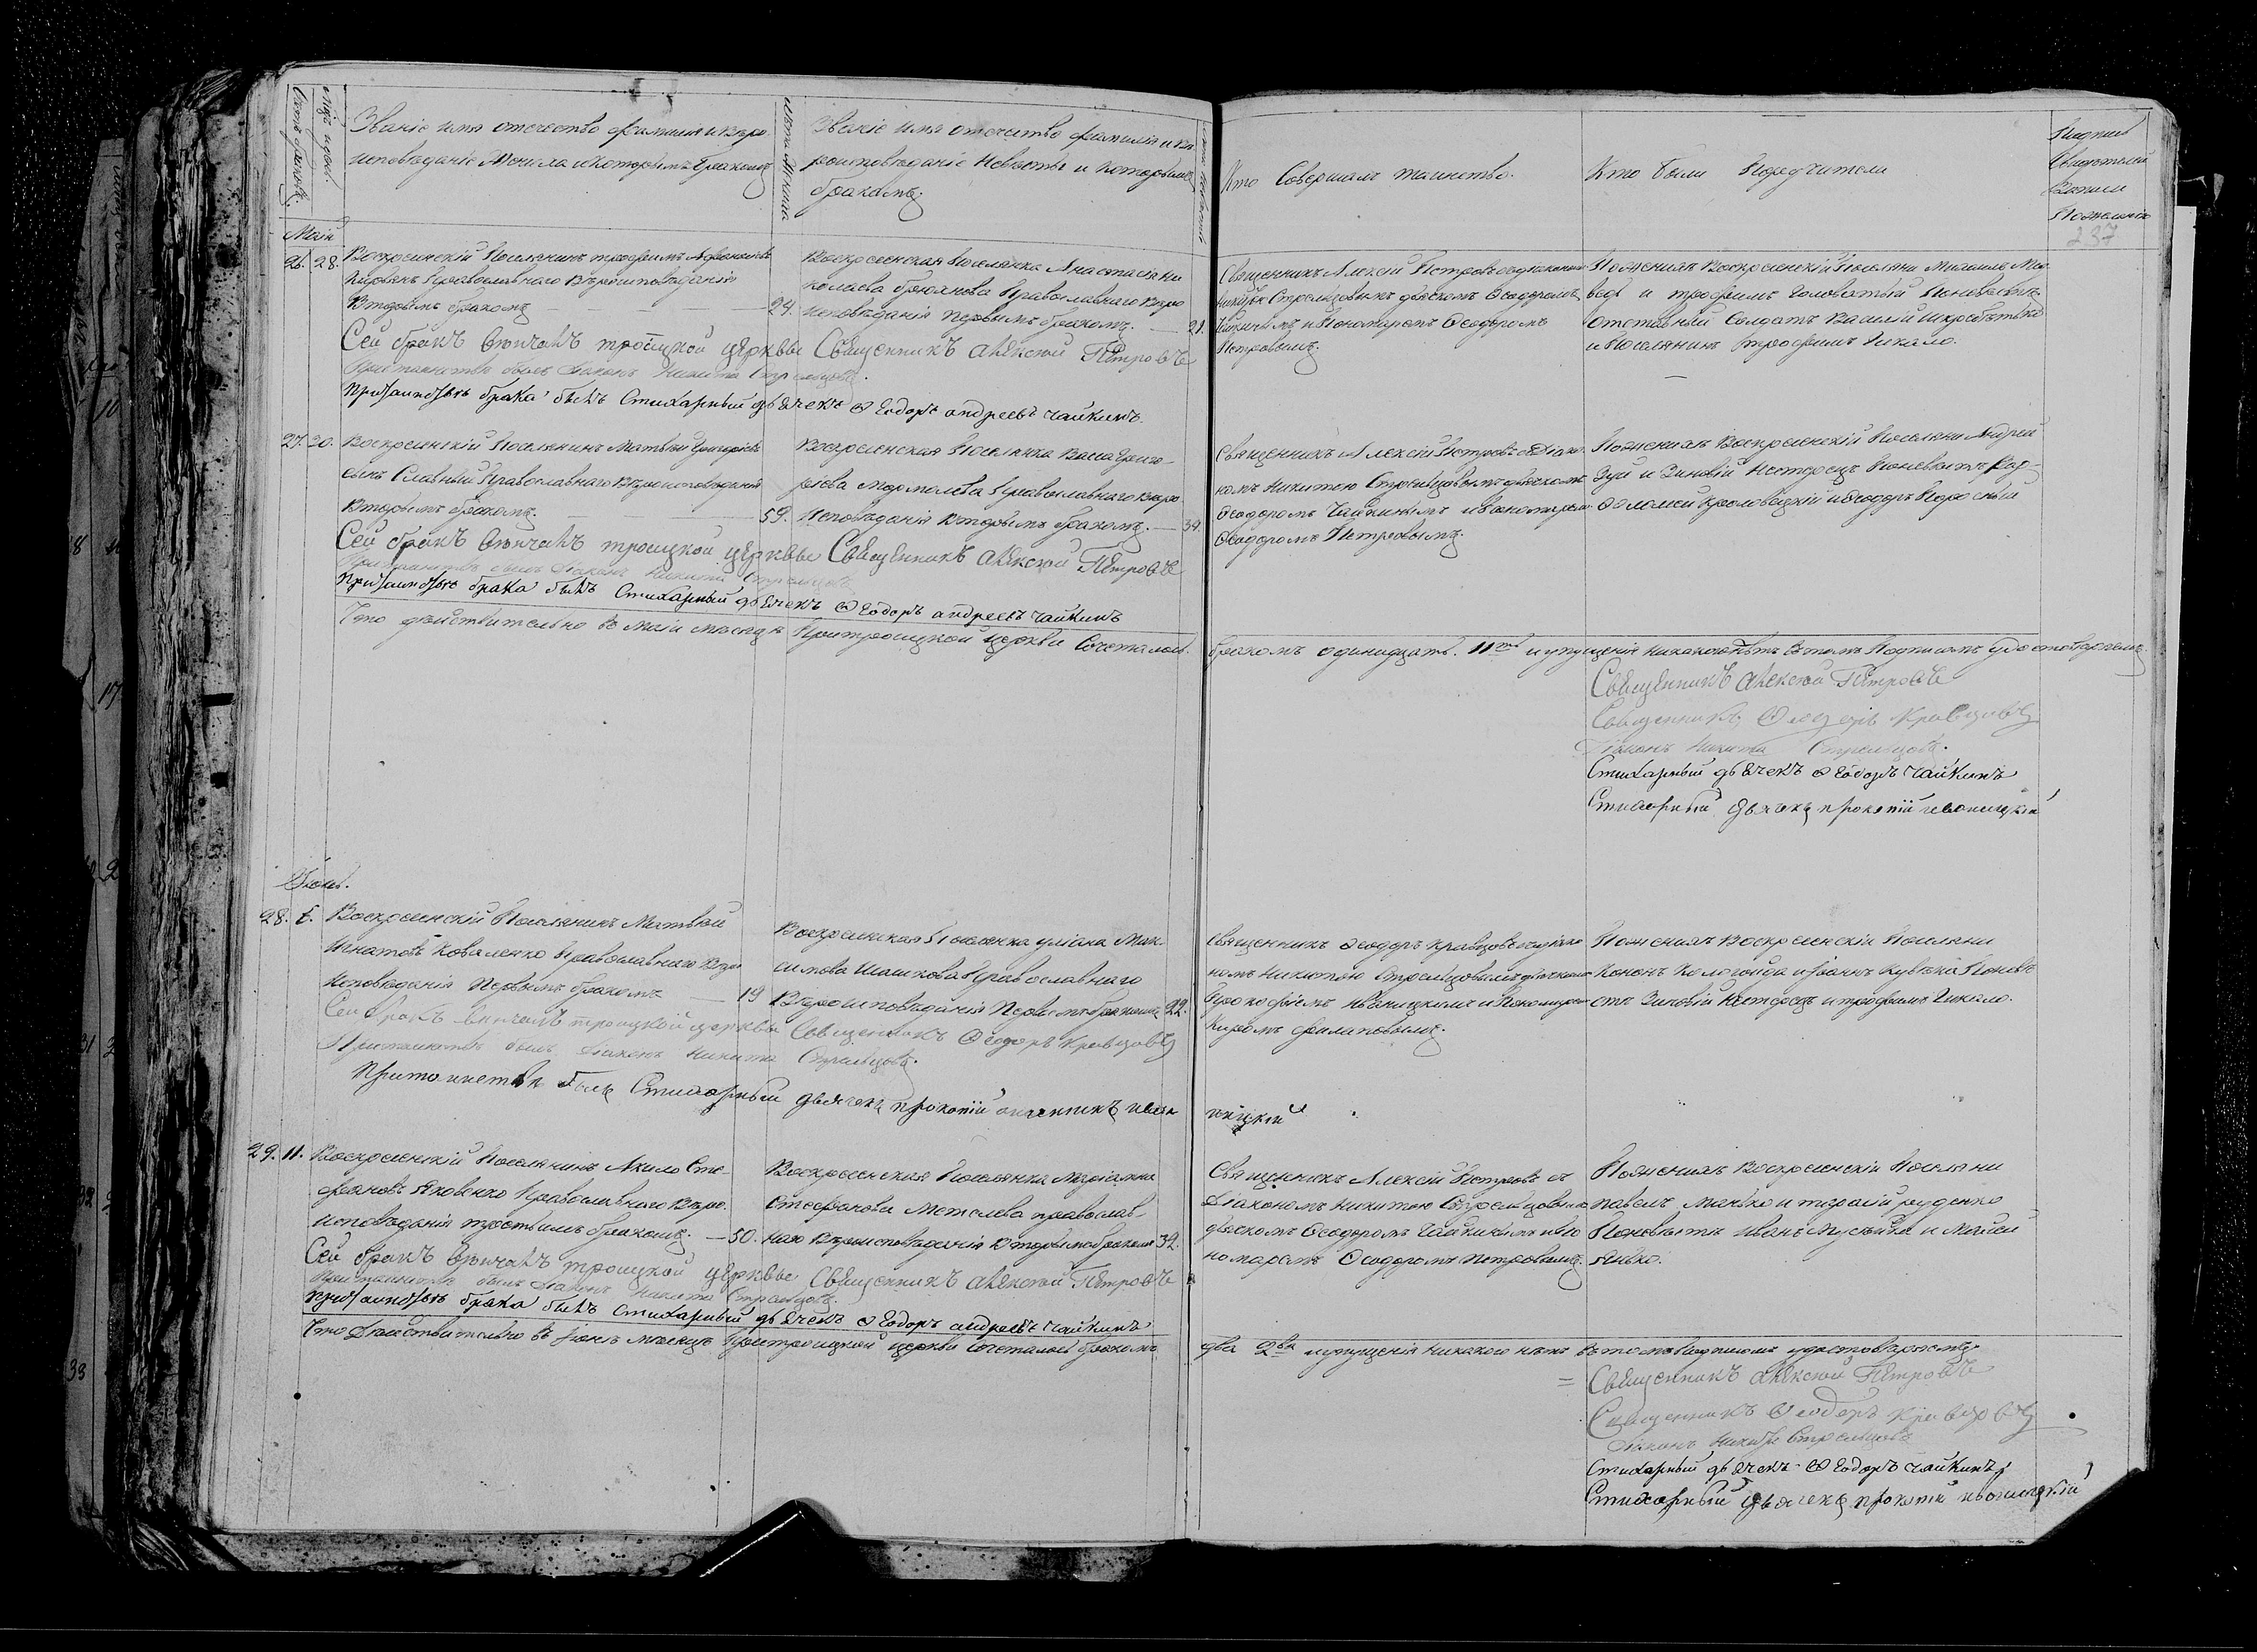 Счетъ браковъ.
Мѣс. и день.
Званіе имя отечество фамилия и Вѣро
исповѣданіе Жениха и которымъ бракомъ
Лѣта Жениха
Званіе имя отечество фамилія и вѣ
роисповѣданіе Невѣсты и которымъ
бракомъ.
Кто Совершалъ таинство.
Кто были Поручители
Подписи
Свидѣтелей
Записи
Пожеланію
237
Маій
26. 28. Воскресенскій Поселянинъ трофимъ
Православнаго Вѣроисповѣданія
Вторымъ бракомъ 24.
Воскресенская Поселянка Анастасія Ни
колаева Православнаго Вѣро
исповѣданія Первымъ бракомъ. 21.
Священникъ Алексій Петровъ
Никитою Стрельцовымъ дьячкомъ Феодоромъ
Чайкинымъ и Пономаремъ Феодоромъ
Петровымъ.
Поженихѣ Воскресенскій Поселяни Михаилъ Мед
ведь и трофимъ Головатый Поневѣстѣ
Отставный Солдатъ Василій
и Поселянинъ трофимъ Чикало.
Сей бракъ вѣнчалъ троицкой церквы Священникъ Алексѣй Петровъ
При таинствѣ былъ Діаконъ Никита Стрельцовъ.
При таинствѣ брака былъ Стихарный дьячекъ Феодоръ андреевъ чайкинъ.
27. 30. Воскресенскій Поселянинъ Матвѣй Григорьевъ
сынъ Славный Православнаго Вѣроисповѣданія
Вторымъ бракомъ. 59.
Воскресенская Поселянка Васса Григо-
рьева Мармолева Православнаго Вѣро
Исповѣданія Вторымъ бракомъ. 39.
Священникъ Алексій Петровъ съ Діако
номъ Никитою Стрельцовымъ дьячкомъ
Феодоромъ Чайкинымъ и Пономаремъ
Феодоромъ Петровымъ.
Поженихѣ Воскресенскій Поселяни Андрей
Зуй и Зиновій Нестерецъ Поневѣстѣ Вар-
фоломей и Феодоръ
Сей бракъ вѣнчалъ троицкой церквы Священникъ Алексѣй Петровъ
При таинствѣ былъ Діаконъ Никита Стрельцовъ
При таинствѣ брака былъ Стихарный дьячекъ Феодоръ андреевъ чайкинъ
Что дѣйствительно въ Маіи мѣсяцѣ При троицкой церкви Сочеталось бракомъ одинадцать. 11ть и упущенія никакого нѣтъ въ томъ Подписомъ удостовѣряемъ.
Священникъ Алексѣй Петровъ
Священникъ Феодоръ Кравцовъ
Діаконъ Никита Стрельцовъ.
Стихарный дьячекъ Феодоръ Чайкинъ
Стихарный Дьячекъ прокопій иваницкій
Іюнь.
28. Воскресенскій Поселянинъ Матвѣй
Игнатовъ Коваленко Православнаго Вѣро
Исповѣданія Первымъ бракомъ 19
Воскресенская Поселянка уліана Мак-
симова Шашкова Православнаго
Вѣроисповѣданія Первымъ бракомъ 22.
Священникъ Феодоръ Кравцовъ
номъ Никитою Стрельцовымъ дьячкомъ
Прокофіемъ Иваницкимъ и Пономаремъ
Киромъ Филаповымъ.
Поженихѣ Воскресенскій Поселяни
Кононъ Кологойда и Іоаннъ Поневѣ
стѣ Зиновій Нестерецъ и трофимъ Чикало.
Сей бракъ вѣнчалъ троицкой церквы Священникъ Феодоръ Кравцовъ
При таинствѣ былъ Діаконъ Никита Стрельцовъ.
При таинствѣ былъ Стихарный дьячекъ прокопій иваницкій
29. 11. Воскресенскій Поселянинъ Акило Сте-
фановъ Яковенко Православнаго Вѣро-
исповѣданія третьимъ бракомъ. 50.
Воскресенская Поселянка Маріанна
Стефанова Метелева православ-
наго Вѣроисповѣданія Вторымъ бракомъ 39.
Священникъ Алексій Петровъ съ
Діакономъ Никитою Стрельцовымъ
дьячкомъ Феодоромъ Чайкинымъ и По
номаремъ Феодоромъ Петровымъ.
Поженихѣ Воскресенскій Поселяни
павелъ и тарасій руденко
Поневѣстѣ Иванъ и
Сей бракъ вѣнчалъ троицкой церквы Священникъ Алексѣй Петровъ
При таинствѣ былъ Діаконъ Никита Стрельцовъ.
При таинствѣ брака былъ Стихарный дьячекъ Феодоръ андреевъ чайкинъ
Что Дѣйствительно въ Іюнѣ мѣсяцѣ При троицкой церкви Сочеталось бракомъ два 2ва и упущенія никакого нѣтъ въ томъ Подписомъ удостовѣряемъ.
Священникъ Алексѣй Петровъ
Священникъ Феодоръ Кравцовъ
Діаконъ Никита Стрельцовъ
Стихарный дьячекъ Феодоръ чайкинъ
Стихарный Дьячекъ прокопій иваницкій